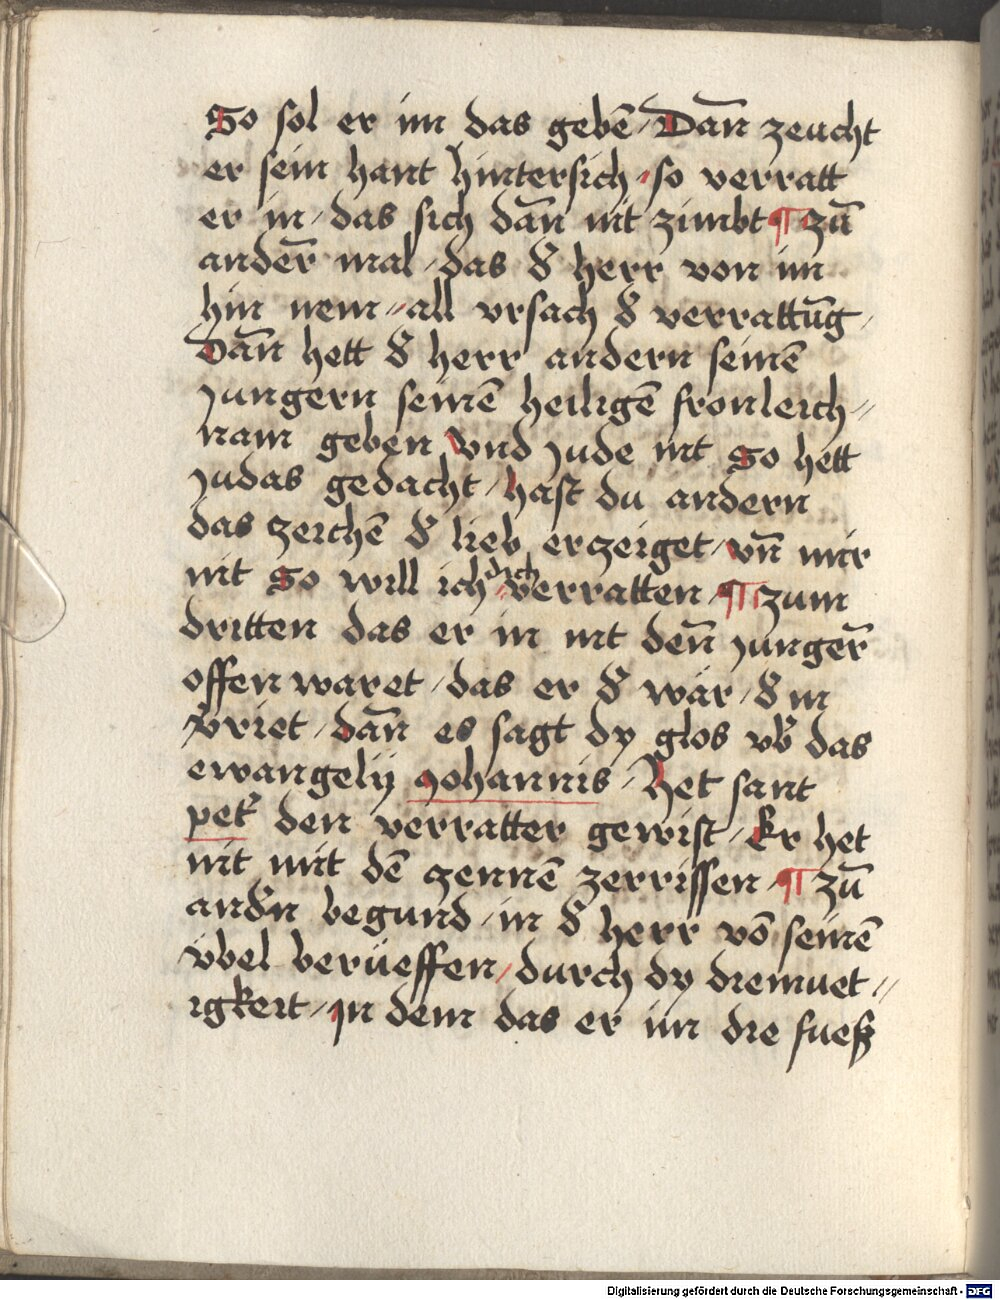 So sol er im das gebē / Dañ zeucht
er sein hant hintersich / so verratt
er in / das sich dañ nit zimbt ¶ zū
ander̄ mal / das d̕ herr von im
hin nem // all vrsach d̕ verrattūg /
Dañ hett d̕ herr andern seinē
jungern seinē heiligē fronleich //
nam geben Vnd jude nit So hett
judas gedacht / hast du andern
das zeichē d̕ lieb erzeiget / vñ mir
nit So will ich dich verratten / ¶ zum
dritten das er in nit deñ junger̄
offen waret / das er d̕ wär / d̕ in
v̓riet / dañ es sagt dy glos vb̕ das
ewangelij Johannis / Het sant
pet̕ den verratter gewist / Er het
nit mit dē zennē zerrissen / ¶ zū
and̕n begund / in d̕ herr vō seinē
übel berüeffen / durch dy diemuet //
igkeit / jn dem das er im die fueß
Digitalisierung gefördert durch die Deutsche Forschungsgemeinschaft - DFG